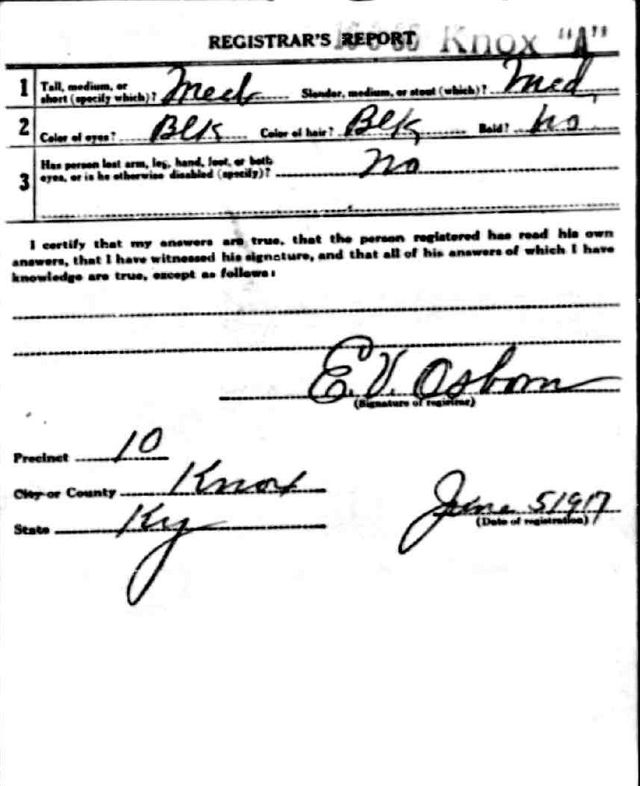 REGISTRAR'S REPORT Knox "A"
1 Tall, medium, or short (specify which)? Med Slender, medium, or stout (which)? Med.
2 Color of eyes? Blk Color of hair? Blk Bald? No
3 Has person lost arm, leg, hand, foot, or both eyes, or is he otherwise disabled (specify)? No
I certify that my answers are true, that the person registered has read his own
answers, that I have witnessed his signature, and that all of his answers of which I have
knowledge are true, except as follows:
E. V. Osborn
(Signature of registrar)
Precinct 10
City or County Knox
State Ky
June 5 1917
(Date of registration)